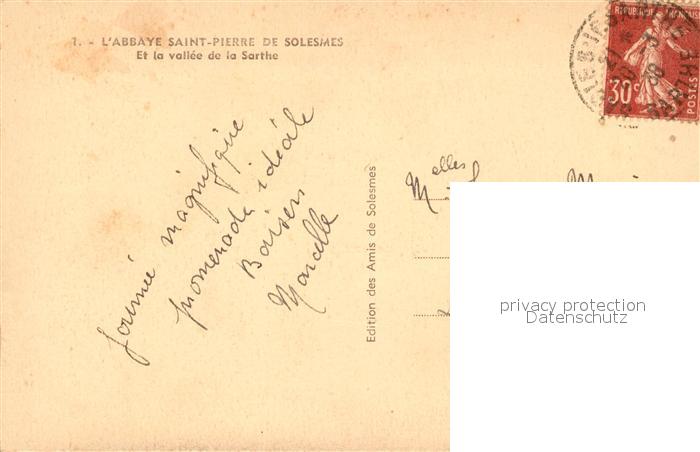 1. - L'ABBAYE SAINT-PIERRE DE SOLESMES
Et la vallée de la Sarthe
journée magnifique
promenade idéale
Baisers
Marcelle
Edition des Amis de Solesmes
REPUBLIQUE FRANÇAISE
30c
POSTES
Melles
privacy protection
Datenschutz